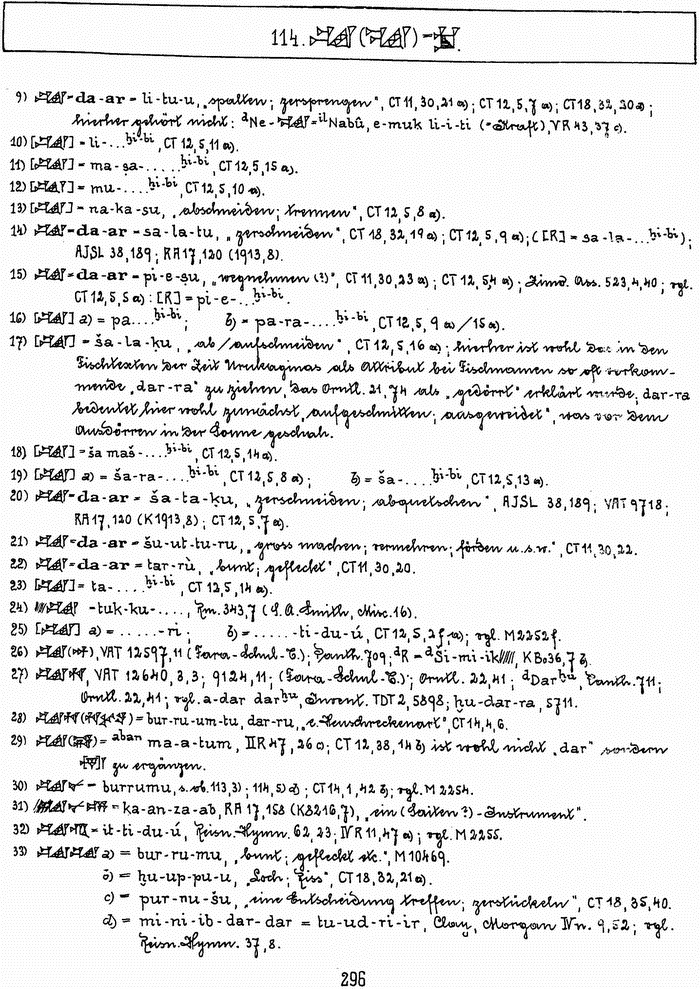 114. 𒁯(𒁯) - 
9) 𒁯 = da-ar = li-tu-u, „spalten; zersprengen“, CT 11,30,21 a); CT 12,5,7 a); CT 18,32,30 a);
hierher gehört nicht: ᵈNe-𒁯 = ⁱˡNabû, e-muk li-i-ti (= Kraft), VR 43,37 c).
10) [𒁯] = li-... ḫi-bi, CT 12,5,11 a).
11) [𒁯] = ma-ṣa-..... ḫi-bi, CT 12,5,15 a).
12) [𒁯] = mu-.... ḫi-bi, CT 12,5,10 a).
13) [𒁯] = na-ka-su, „abschneiden; trennen“, CT 12,5,8 a).
14) 𒁯 = da-ar = sa-la-tu, „zerschneiden“, CT 18,32,19 a); CT 12,5,9 a); ([R] = sa-la-... ḫi-bi);
AJSL 38,189; RA 17,120 (1913,8).
15) 𒁯 = da-ar = pi-e-ṣu, „wegnehmen (?)“, CT 11,30,23 a); CT 12,5,4 a); Zimd. Ass. 523,4,40; vgl.
CT 12,5,5 a): [R] = pi-e-... ḫi-bi.
16) [𒁯] a) = pa.... ḫi-bi; b) = pa-ra-.... ḫi-bi, CT 12,5,9 a/15 a).
17) [𒁯] = ša-la-ḳu, „ab/aufschneiden“, CT 12,5,16 a); hierher ist wohl das in den
Fischtexten der Zeit Urukaginas als Attribut bei Fischnamen so oft vorkom-
mende „dar-ra“ zu ziehen, das Orntl. 21,74 als „gedörrt“ erklärt wurde; dar-ra
bedeutet hier wohl zunächst „aufgeschnitten; ausgeweidet“, was vor dem
Ausdörren in der Sonne geschah.
18) [𒁯] = ša maš-.... ḫi-bi, CT 12,5,14 a).
19) [𒁯] a) = ša-ra-.... ḫi-bi, CT 12,5,8 a); b) = ša-.... ḫi-bi, CT 12,5,13 a).
20) 𒁯 = da-ar = ša-ta-ḳu, „zerschneiden; abquetschen“, AJSL 38,189; VAT 9718;
RA 17,120 (K 1913,8); CT 12,5,7 a).
21) 𒁯 = da-ar = šu-ut-tu-ru, „gross machen; vermehren; förden u.s.w.“, CT 11,30,22.
22) 𒁯 = da-ar = tar-rù, „bunt; gefleckt“, CT 11,30,20.
23) [𒁯] = ta-.... ḫi-bi, CT 12,5,14 a).
24) 𒁯 -tuk-ku-...., Rm. 343,7 (S.A. Smith, Misc. 16).
25) [𒁯] a) = ......-ri; b) = ......-ti-du-ú, CT 12,5,2 f, a); vgl. M 2252 f.
26) 𒁯, VAT 12597,11 (Fara-Schul-T.); Panth. 709; ᵈR = ᵈŠi-mi-ik, KBo 36,7 b.
27) 𒁯, VAT 12640,3,3; 9124,11; (Fara-Schul-T.); Orntl. 22,41; ᵈDarḫu, Panth. 711;
Orntl. 22,41; vgl. a-dar darḫu, Invent. TDT 2,5898; ḫu-dar-ra, 5711.
28) 𒁯 = bur-ru-um-tu, dar-ru, „e. Heuschreckenart“, CT 14,4,6.
29) 𒁯 = aban ma-a-tum, II R 47,26 c); CT 12,38,14 b) ist wohl nicht „dar“ sondern
zu ergänzen.
30) 𒁯 = burrumu, s. ob. 113,3); 114,5) d); CT 14,1,42 b); vgl. M 2254.
31) = ka-an-za-ab, RA 17,158 (K 8216,7), „ein (Saiten ?)-Instrument“.
32) 𒁯 = it-ti-du-ú, Reisn. Hymn. 62,23; IV R 11,47 a); vgl. M 2255.
33) 𒁯𒁯 a) = bur-ru-mu, „bunt; gefleckt etc.“, M 10469.
b) = ḫu-up-pu-u, „Loch; Riss“, CT 18,32,21 a).
c) = pur-nu-šu, „eine Entscheidung treffen; zerstückeln“, CT 18,35,40.
d) = mi-ni-ib-dar-dar = tu-ud-ri-ir, Clay, Morgan IV n. 9,52; vgl.
Reisn. Hymn. 37,8.
296